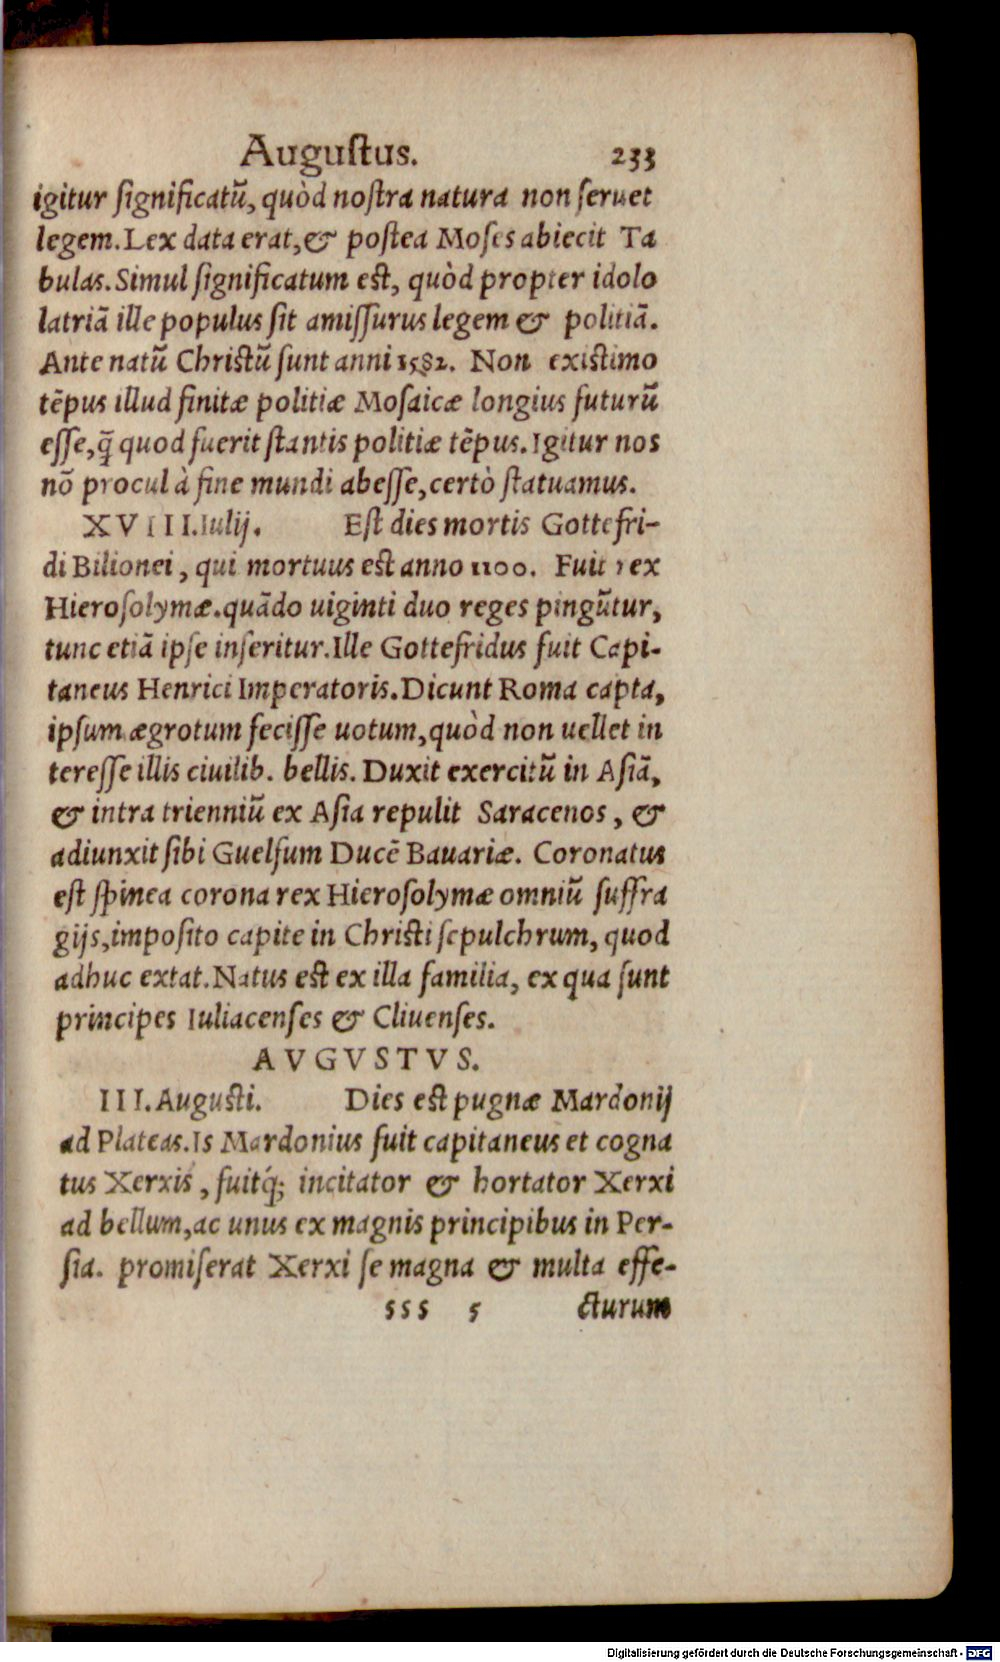 Augustus. 233
igitur ſignificatũ, quòd noſtra natura non ſeruet
legem. Lex data erat, & poſtea Moſes abiecit Ta
bulas. Simul ſignificatum eſt, quòd propter idolo
latriã ille populus ſit amiſſurus legem & politiã.
Ante natũ Chriſtũ ſunt anni 1582. Non exiſtimo
tẽpus illud finitæ politiæ Moſaicæ longius futurũ
eſſe, q̃ quod fuerit ſtantis politiæ tẽpus. Igitur nos
nõ procul à fine mundi abeſſe, certò ſtatuamus.
XVIII. Iulij. Eſt dies mortis Gottefri-
di Bilionei, qui mortuus eſt anno 1100. Fuit rex
Hieroſolymæ. quãdo uiginti duo reges pingũtur,
tunc etiã ipſe inſeritur. Ille Gottefridus fuit Capi-
taneus Henrici Imperatoris. Dicunt Roma capta,
ipſum ægrotum feciſſe uotum, quòd non uellet in
tereſſe illis ciuilib. bellis. Duxit exercitũ in Aſiã,
& intra trienniũ ex Aſia repulit Saracenos, &
adiunxit ſibi Guelfum Ducẽ Bauariæ. Coronatus
eſt ſpinea corona rex Hieroſolymæ omniũ ſuffra
gijs, impoſito capite in Chriſti ſepulchrum, quod
adhuc extat. Natus eſt ex illa familia, ex qua ſunt
principes Iuliacenſes & Cliuenſes.
AVGVSTVS.
III. Auguſti. Dies eſt pugnæ Mardonij
ad Plateas. Is Mardonius fuit capitaneus et cogna
tus Xerxis, fuitq́; incitator & hortator Xerxi
ad bellum, ac unus ex magnis principibus in Per-
ſia. promiſerat Xerxi ſe magna & multa effe-
sss 5 cturum
Digitalisierung gefördert durch die Deutsche Forschungsgemeinschaft - DFG